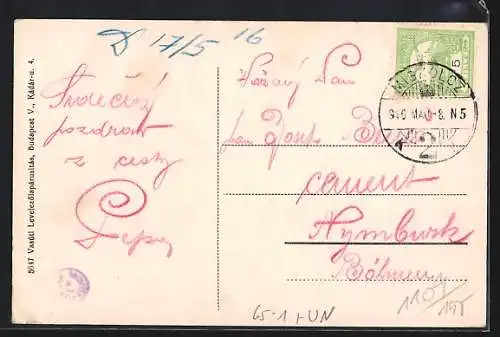 D 17/5 16
Srdečný
pozdrav
z cesty
Pepa
5047 Vasúti Levelezőlapárusítás, Budapest V., Kádár-u. 4.
Vážený Pan
Josef
cement
Nymburk
Böhmen
MISKOLCZ
916 MAJ -8. N5
2
5
65-1 + UN
1107
195